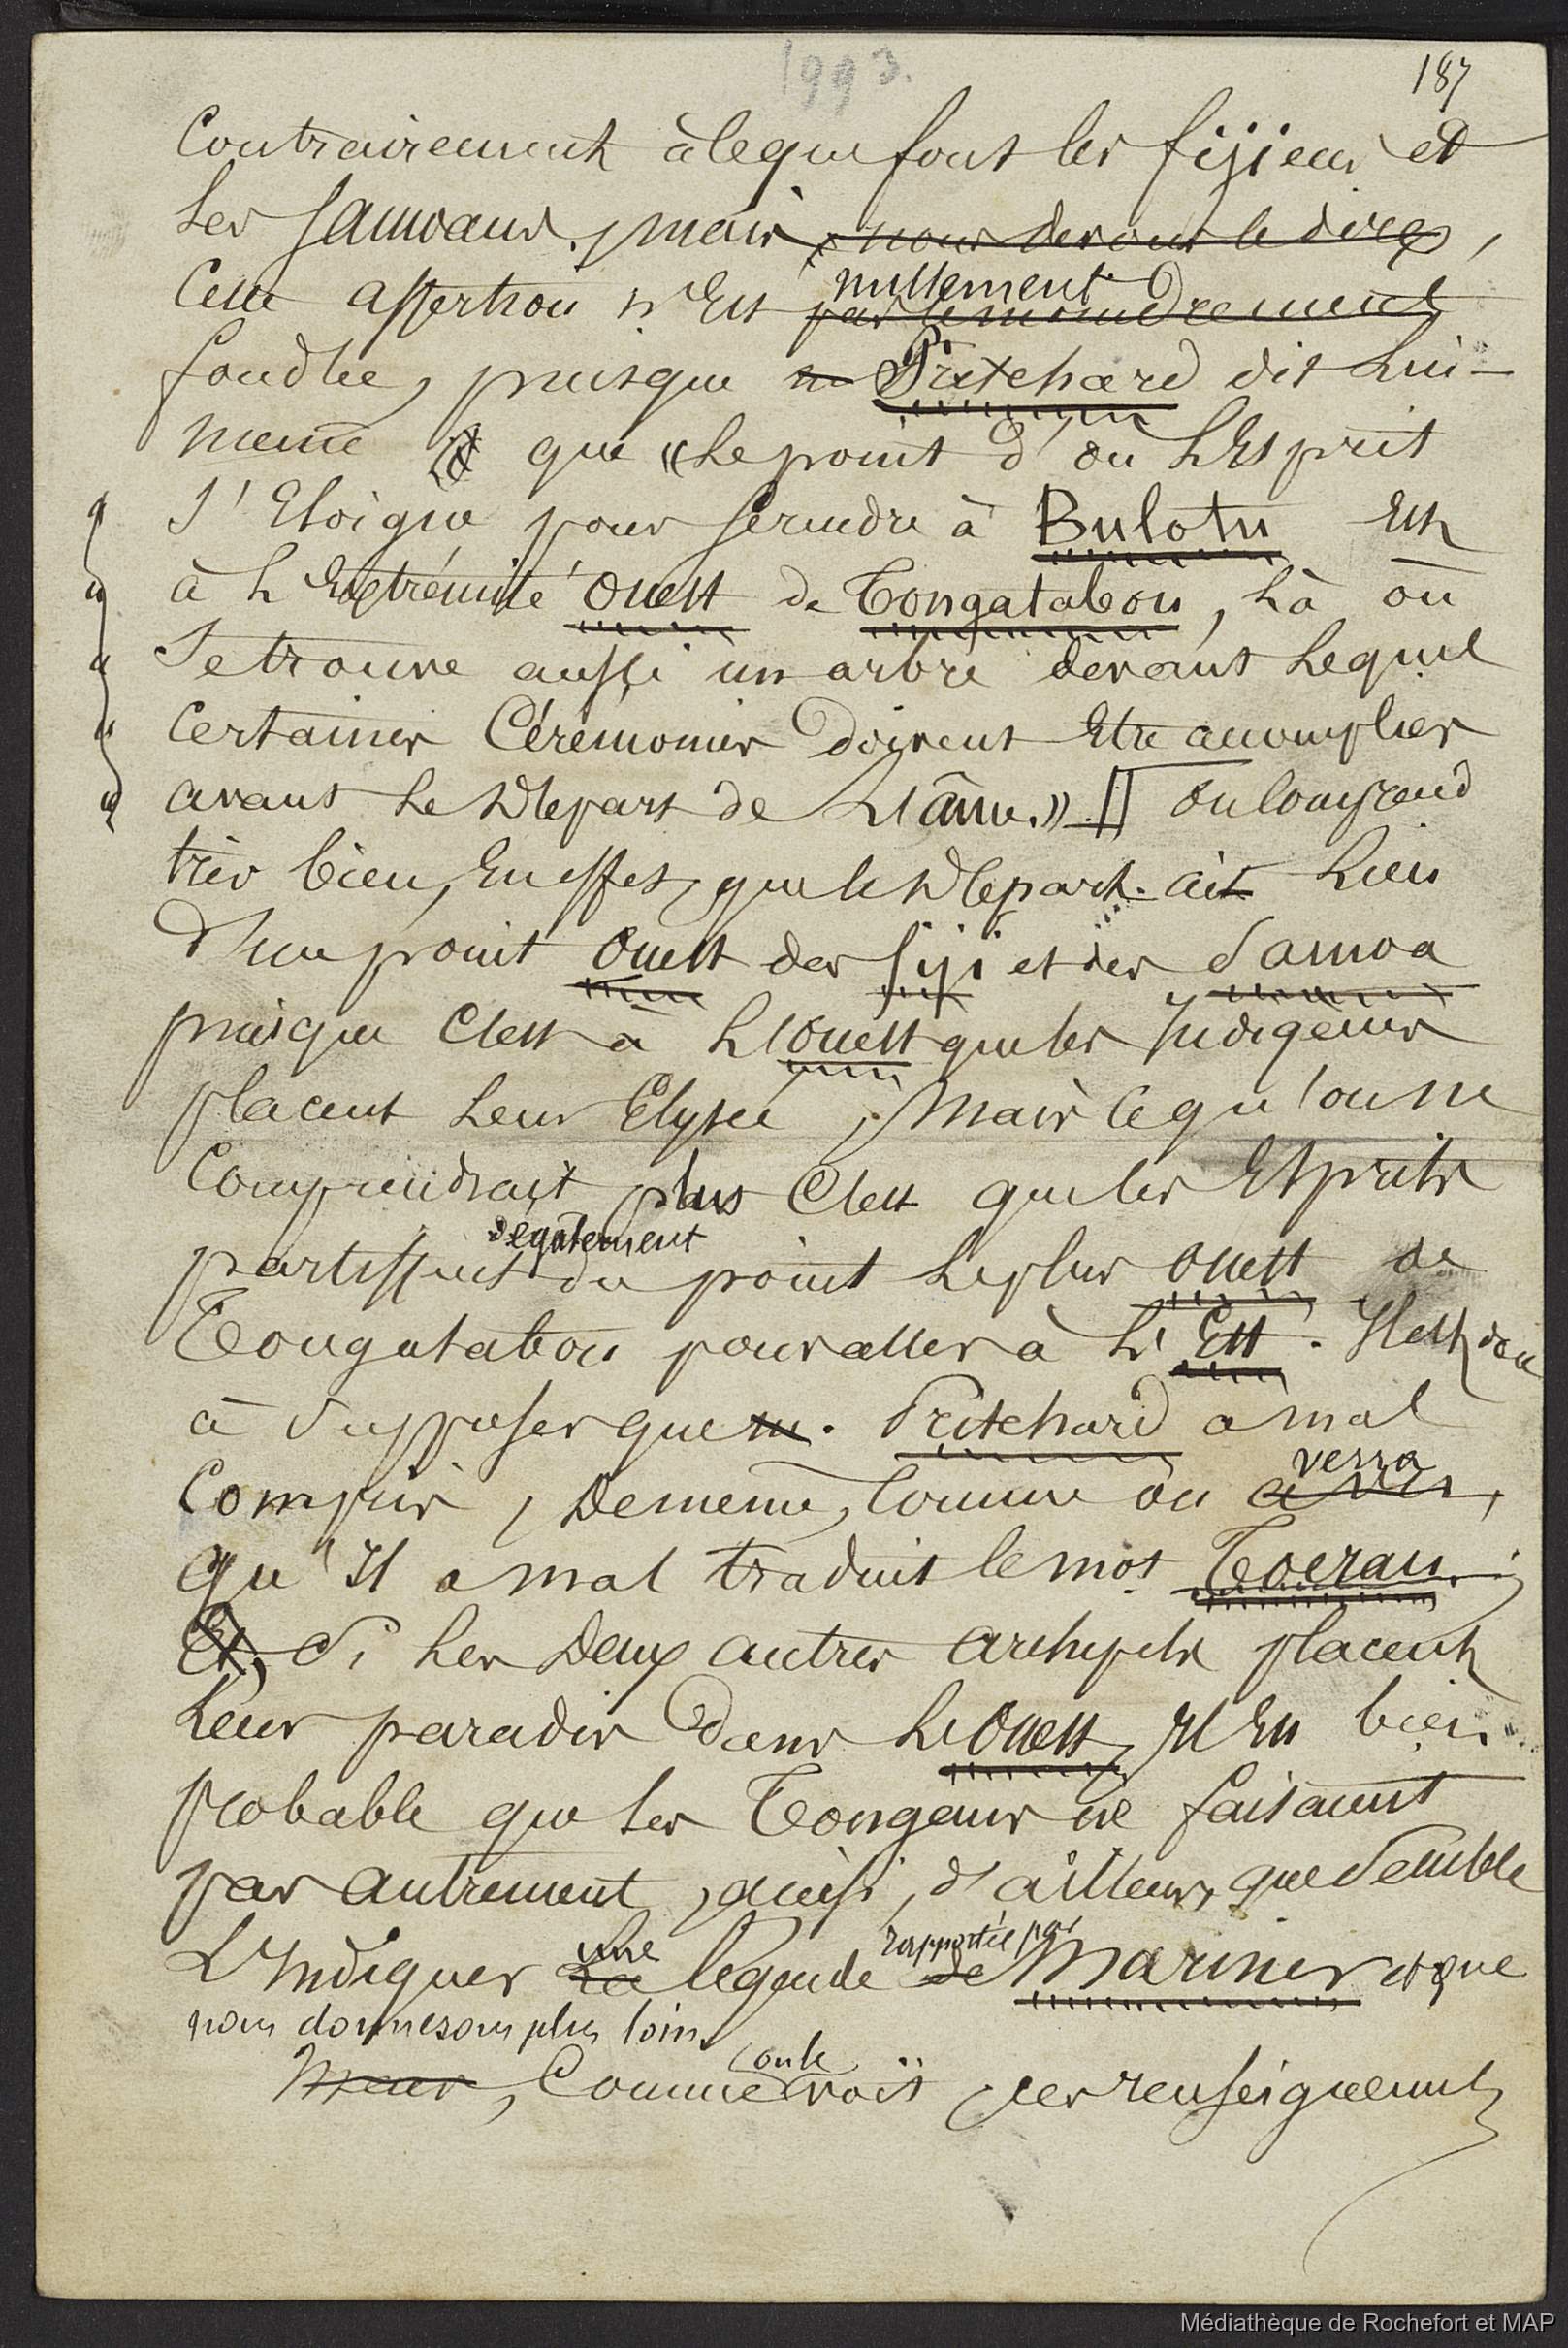 1993.
187
Contrairement à ce que font les fijiens et
les Samoans, mais, nous devons le dire,
nullement
Cette assertion n'est pas le moindrement
fondée, puisque m Pritchard dit lui-
même que « le point d'où l'Esprit
s'éloigne pour se rendre à Bulotu Est
à l'Extrémité Ouest de Tongatabou, là où
se trouve aussi un arbre devant lequel
Certaines Cérémonies doivent Etre accomplies
avant le départ de l'âme. » On comprend
très bien, En effet, que le départ ait lieu
d'un point Ouest des fiji et des Samoa
puisque C'est à l'Ouest que les Indigènes
placent leur Elysée, Mais ce qu'on ne
Comprendrait plus C'est que les Esprits
également
partissent du point le plus Ouest de
Tongatabou pour aller à l'Est. Il est donc
à supposer que m. Pritchard a mal
verra
Compris, De même, Comme on a vu,
qu'Il a mal traduit le mot Toerau;
Et, Si les Deux autres archipels placent
leur paradis dans l'Ouest, Il Est bien
probable que les Tongans ne faisaient
pas autrement, ainsi, d'ailleurs, que semble
une rapportée par
L'Indiquer la légende de Mariner et que
nous donnerons plus loin.
on le
Mais, Comme voit, ces renseignements
Médiathèque de Rochefort et MAP